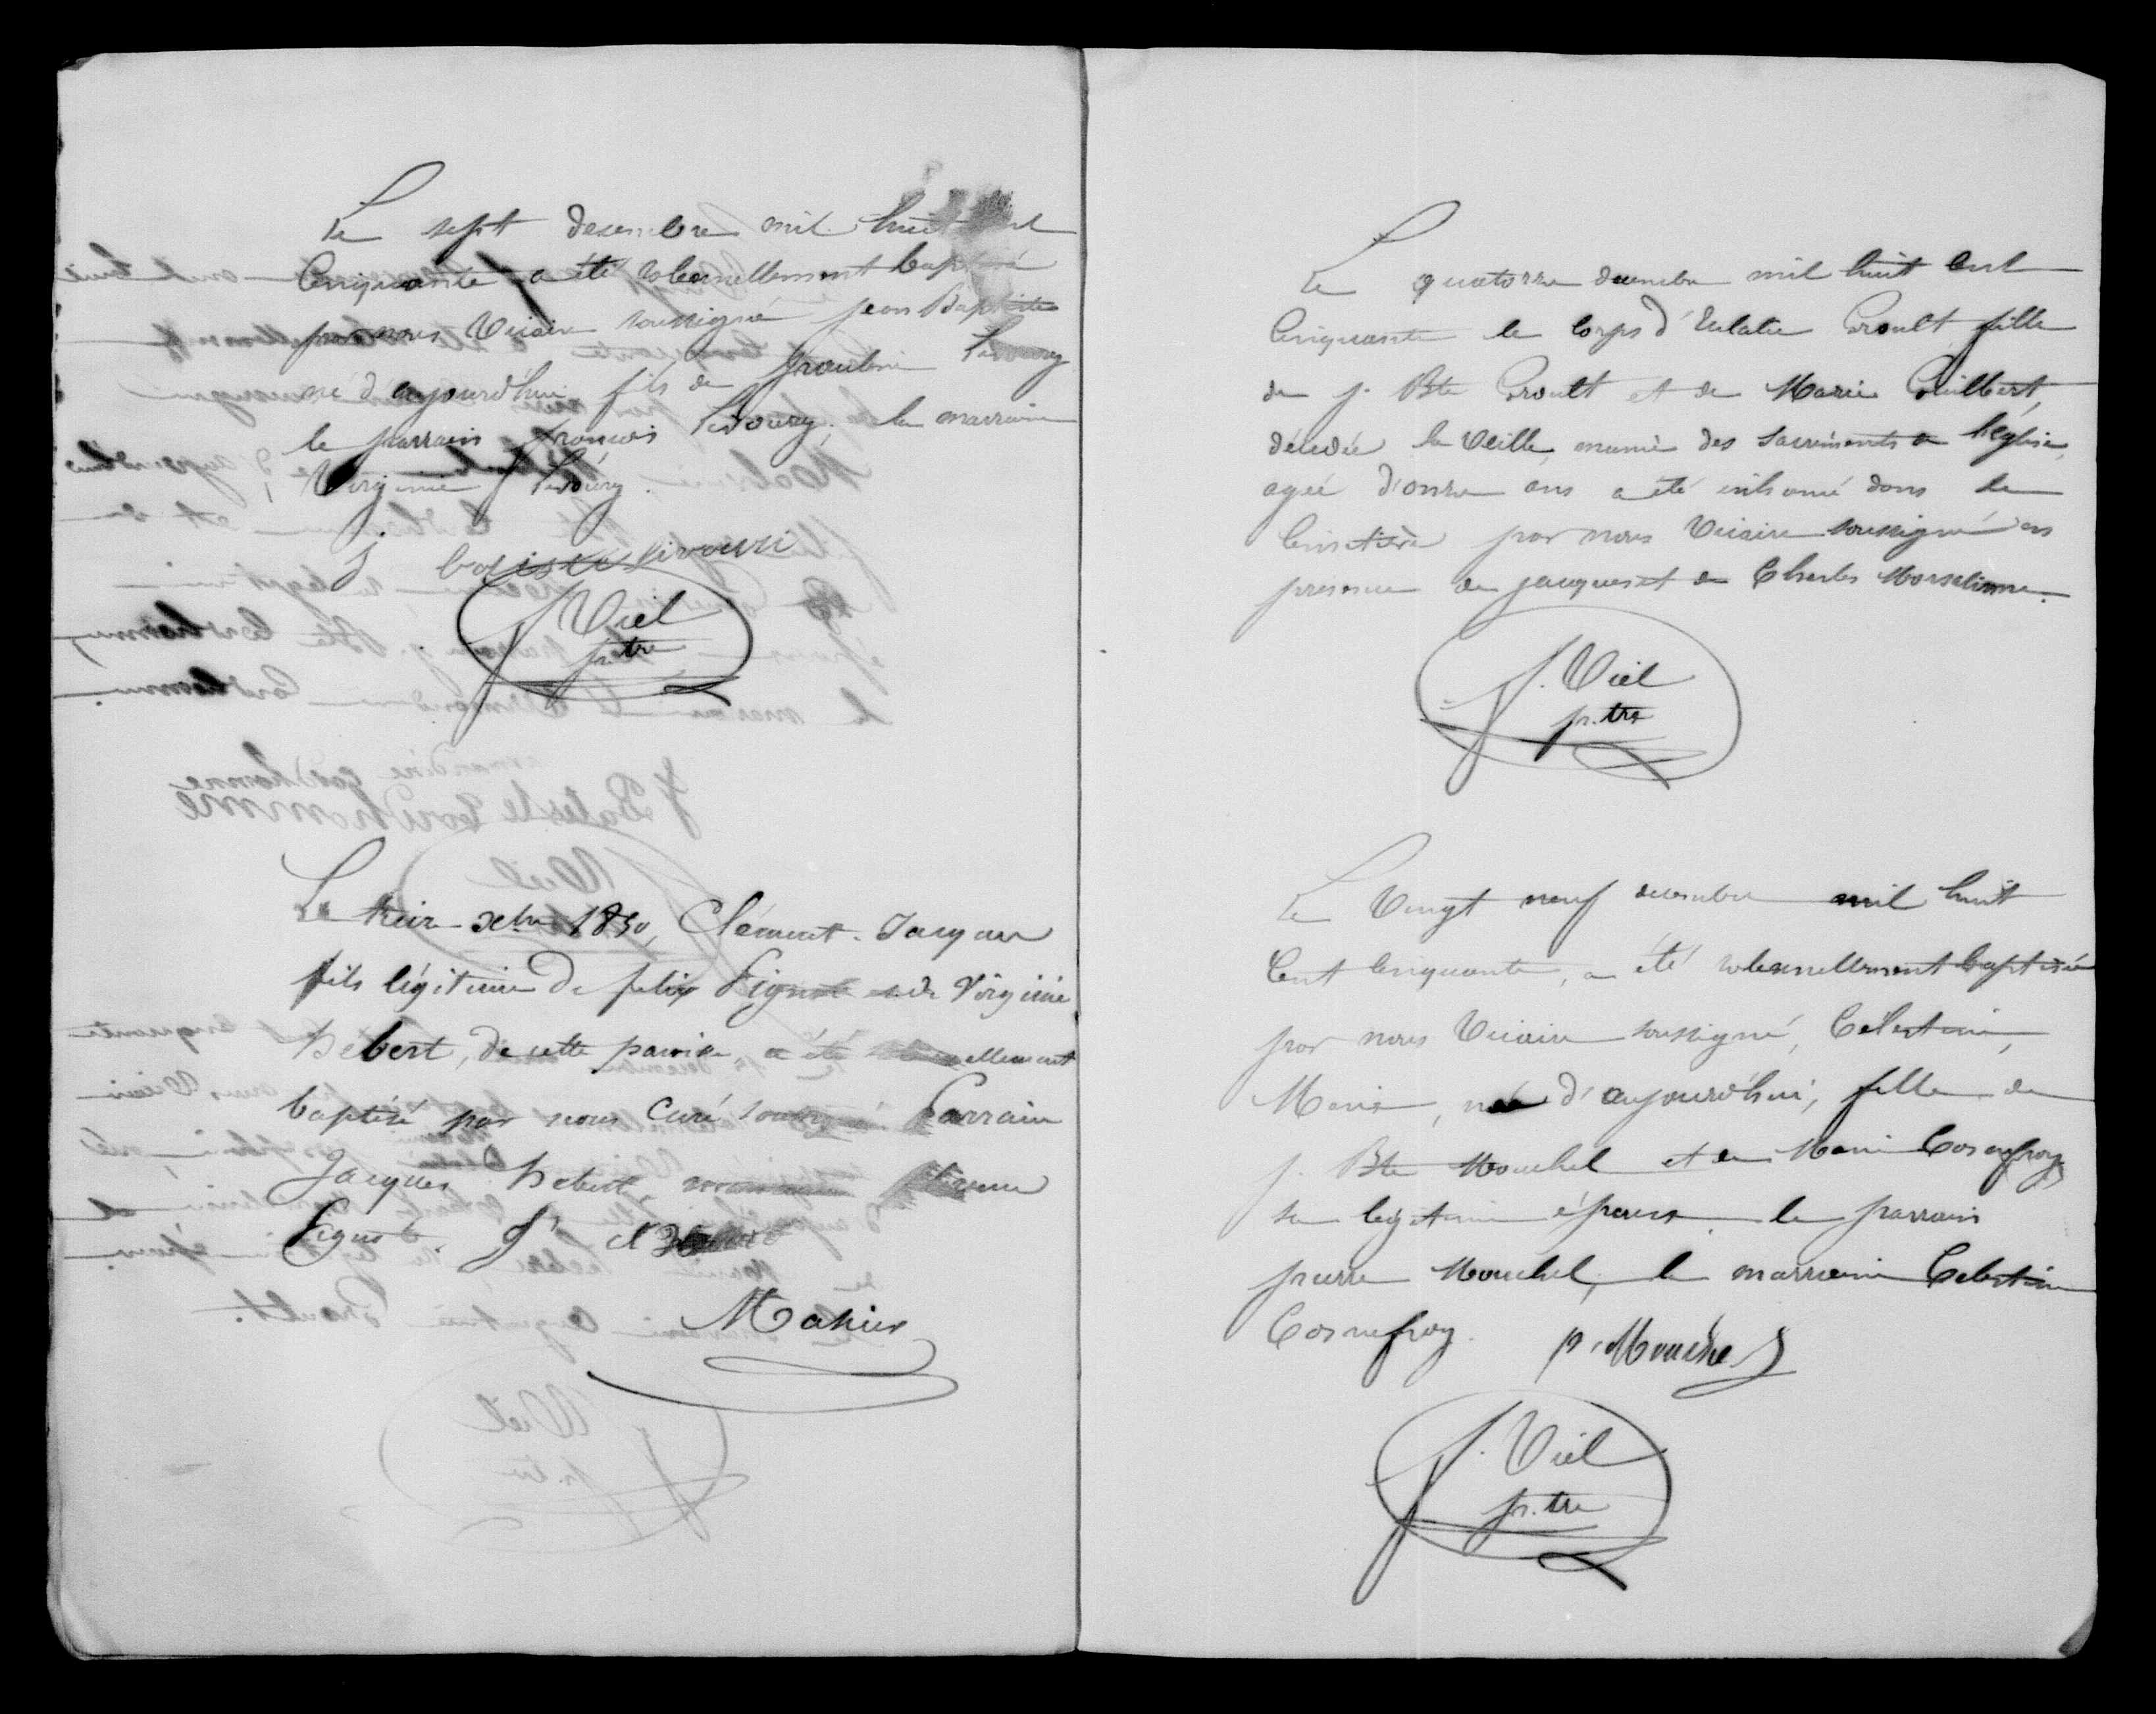 Le sept decembre mil huit cent
Cinquante a été solennellement baptisé
par nous Vicaire soussigné jean Baptiste
né d'aujourd'hui fils de
le parrain françois la marraine
Virginie
Viel
p.tre
Le treize xbre 1850, Clément Jacques
fils légitime de felix Vignot et de Virginie
hebert, de cette paroisse a été solennellement
baptisé par nous Curé soussigné Parrain
Jacques hebert
Vignot
Mahier
Le quatorze decembre mil huit Cent
Cinquante le Corps d'Eulalie Groult fille
de j. Bte Groult et de Marie Guilbert,
décédée la Veille, munie des Sacrements de l'église,
agée d'onze ans a été inhumé dans le
Cimetière par nous Vicaire soussigné en
presence de jacques et de Charles Marseline.
J. Viel
p.tre
Le Vingt neuf decembre mil huit
Cent Cinquante, a été solennellement baptisée
par nous Vicaire soussigné, Celestine,
Marie, née d'aujourd'hui, fille de
j. Bte Mouchel et de Marie Cosnefroy
sa legitime épouse le parrain
pierre Mouchel, la marraine Celestine
Cosnefroy. p. Mouchel
J. Viel
p.tre